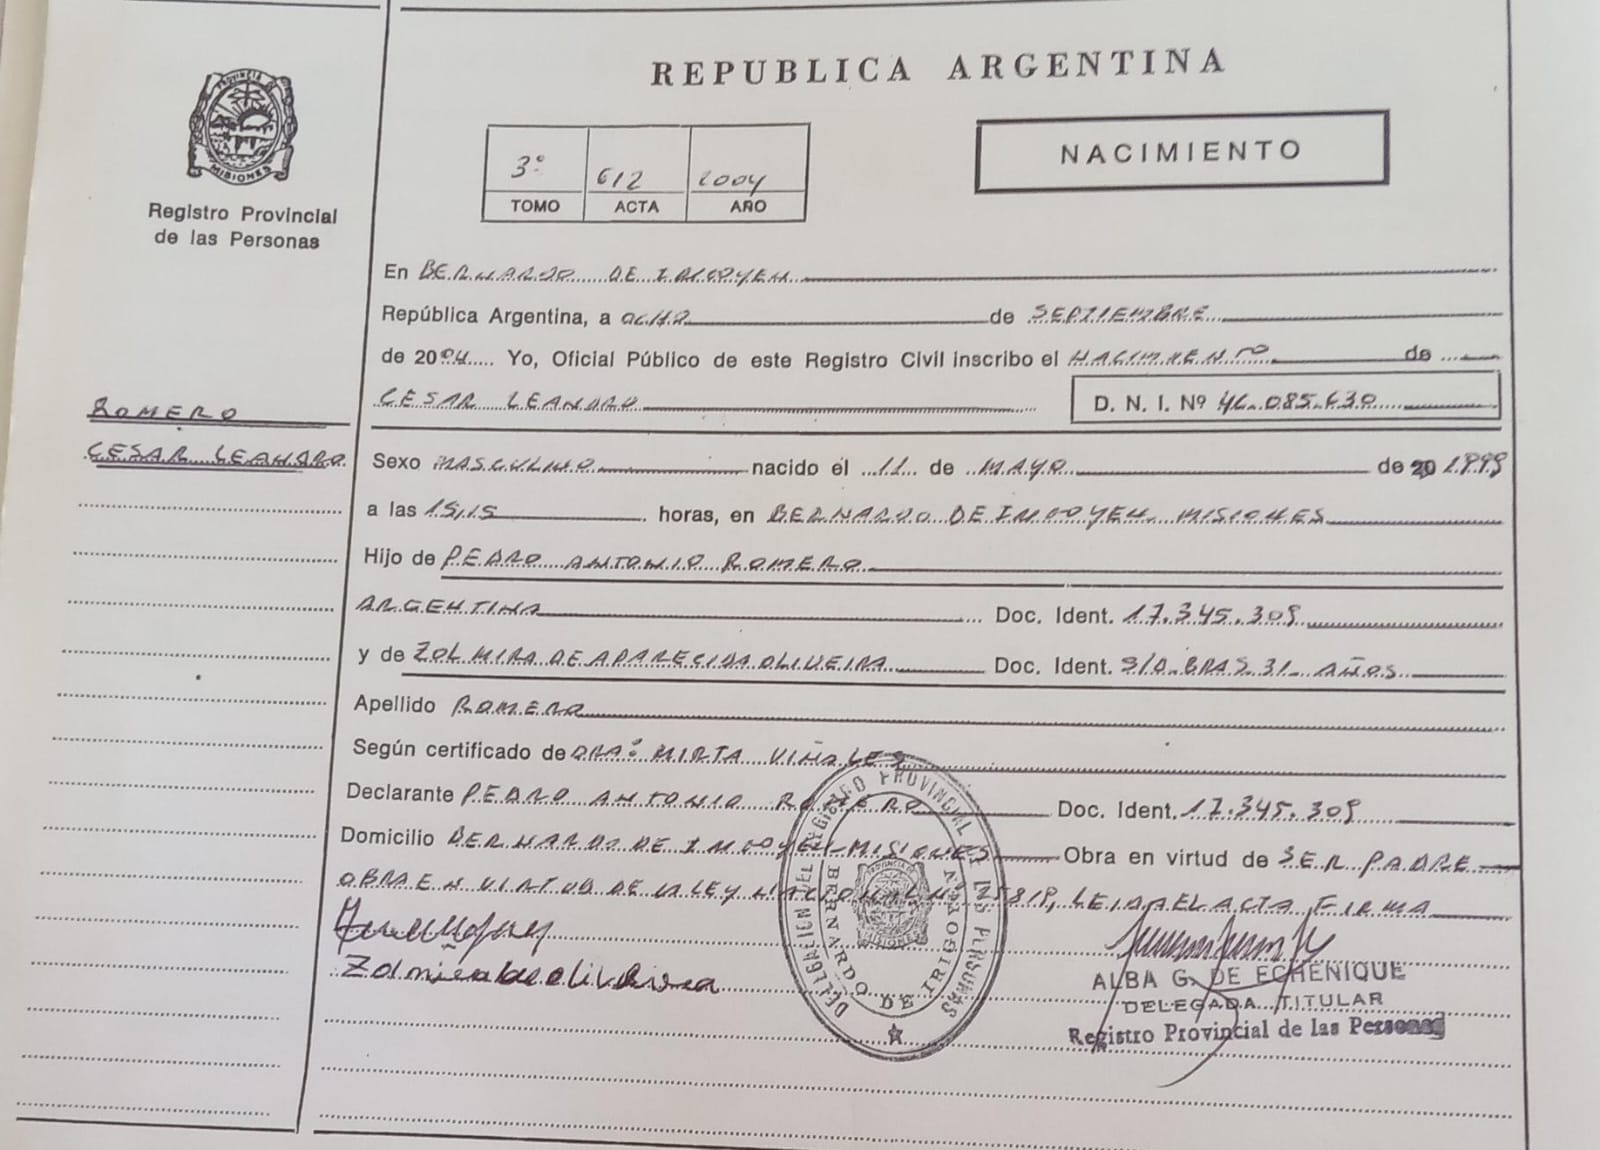 PROVINCIA DE
MISIONES
Registro Provincial
de las Personas
ROMERO
CESAR LEANDRO
REPUBLICA ARGENTINA
NACIMIENTO
3º 612 2004
TOMO ACTA AÑO
En BERNARDO DE IRIGOYEN
República Argentina, a OCHO de SEPTIEMBRE
de 2004 Yo, Oficial Público de este Registro Civil inscribo el NACIMIENTO de
CESAR LEANDRO D. N. I. Nº 46.085.630
Sexo MASCULINO nacido el 11 de MAYO de 20 1999
a las 15,15 horas, en BERNARDO DE IRIGOYEN MISIONES
Hijo de PEDRO ANTONIO ROMERO
ARGENTINA Doc. Ident. 17.345.309
y de ZOLMIRA DE APARECIDA OLIVEIRA Doc. Ident. S/D. BRAS. 31 AÑOS
Apellido ROMERO
Según certificado de DRA: MIRTA VIÑALES
Declarante PEDRO ANTONIO ROMERO Doc. Ident. 17.345.309
Domicilio BERNARDO DE IRIGOYEN-MISIONES Obra en virtud de SER PADRE
OBRA EN VIRTUD DE LA LEY NACIONAL Nº 25819, LEIDA EL ACTA FIRMA
Zolmira de oliveira
DELEGACION DEL REGISTRO PROVINCIAL DE LAS PERSONAS
BERNARDO DE IRIGOYEN
MISIONES
ALBA G. DE ECHENIQUE
DELEGADA TITULAR
Registro Provincial de las Personas